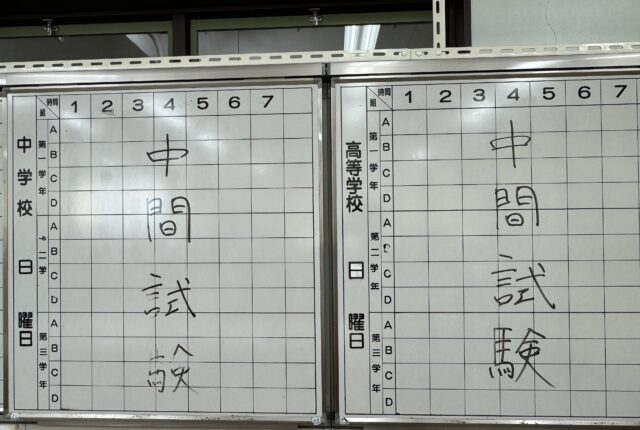 中学校 日 曜日
時間
組
1 2 3 4 5 6 7
第一学年
A
B
C
D
第二学年
A
B
C
D
第三学年
A
B
C
D
中間試験
高等学校 日 曜日
時間
組
1 2 3 4 5 6 7
第一学年
A
B
C
D
第二学年
A
B
C
D
第三学年
A
B
C
D
中間試験